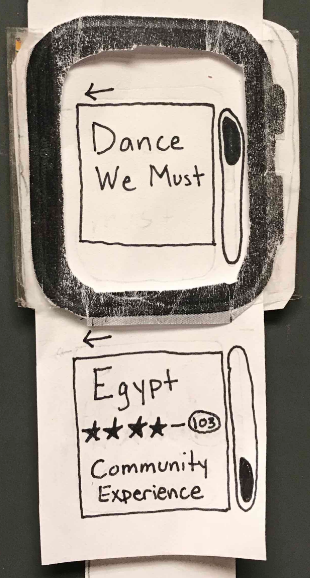 Dance
We Must
Egypt
★★★★– 103
Community
Experience